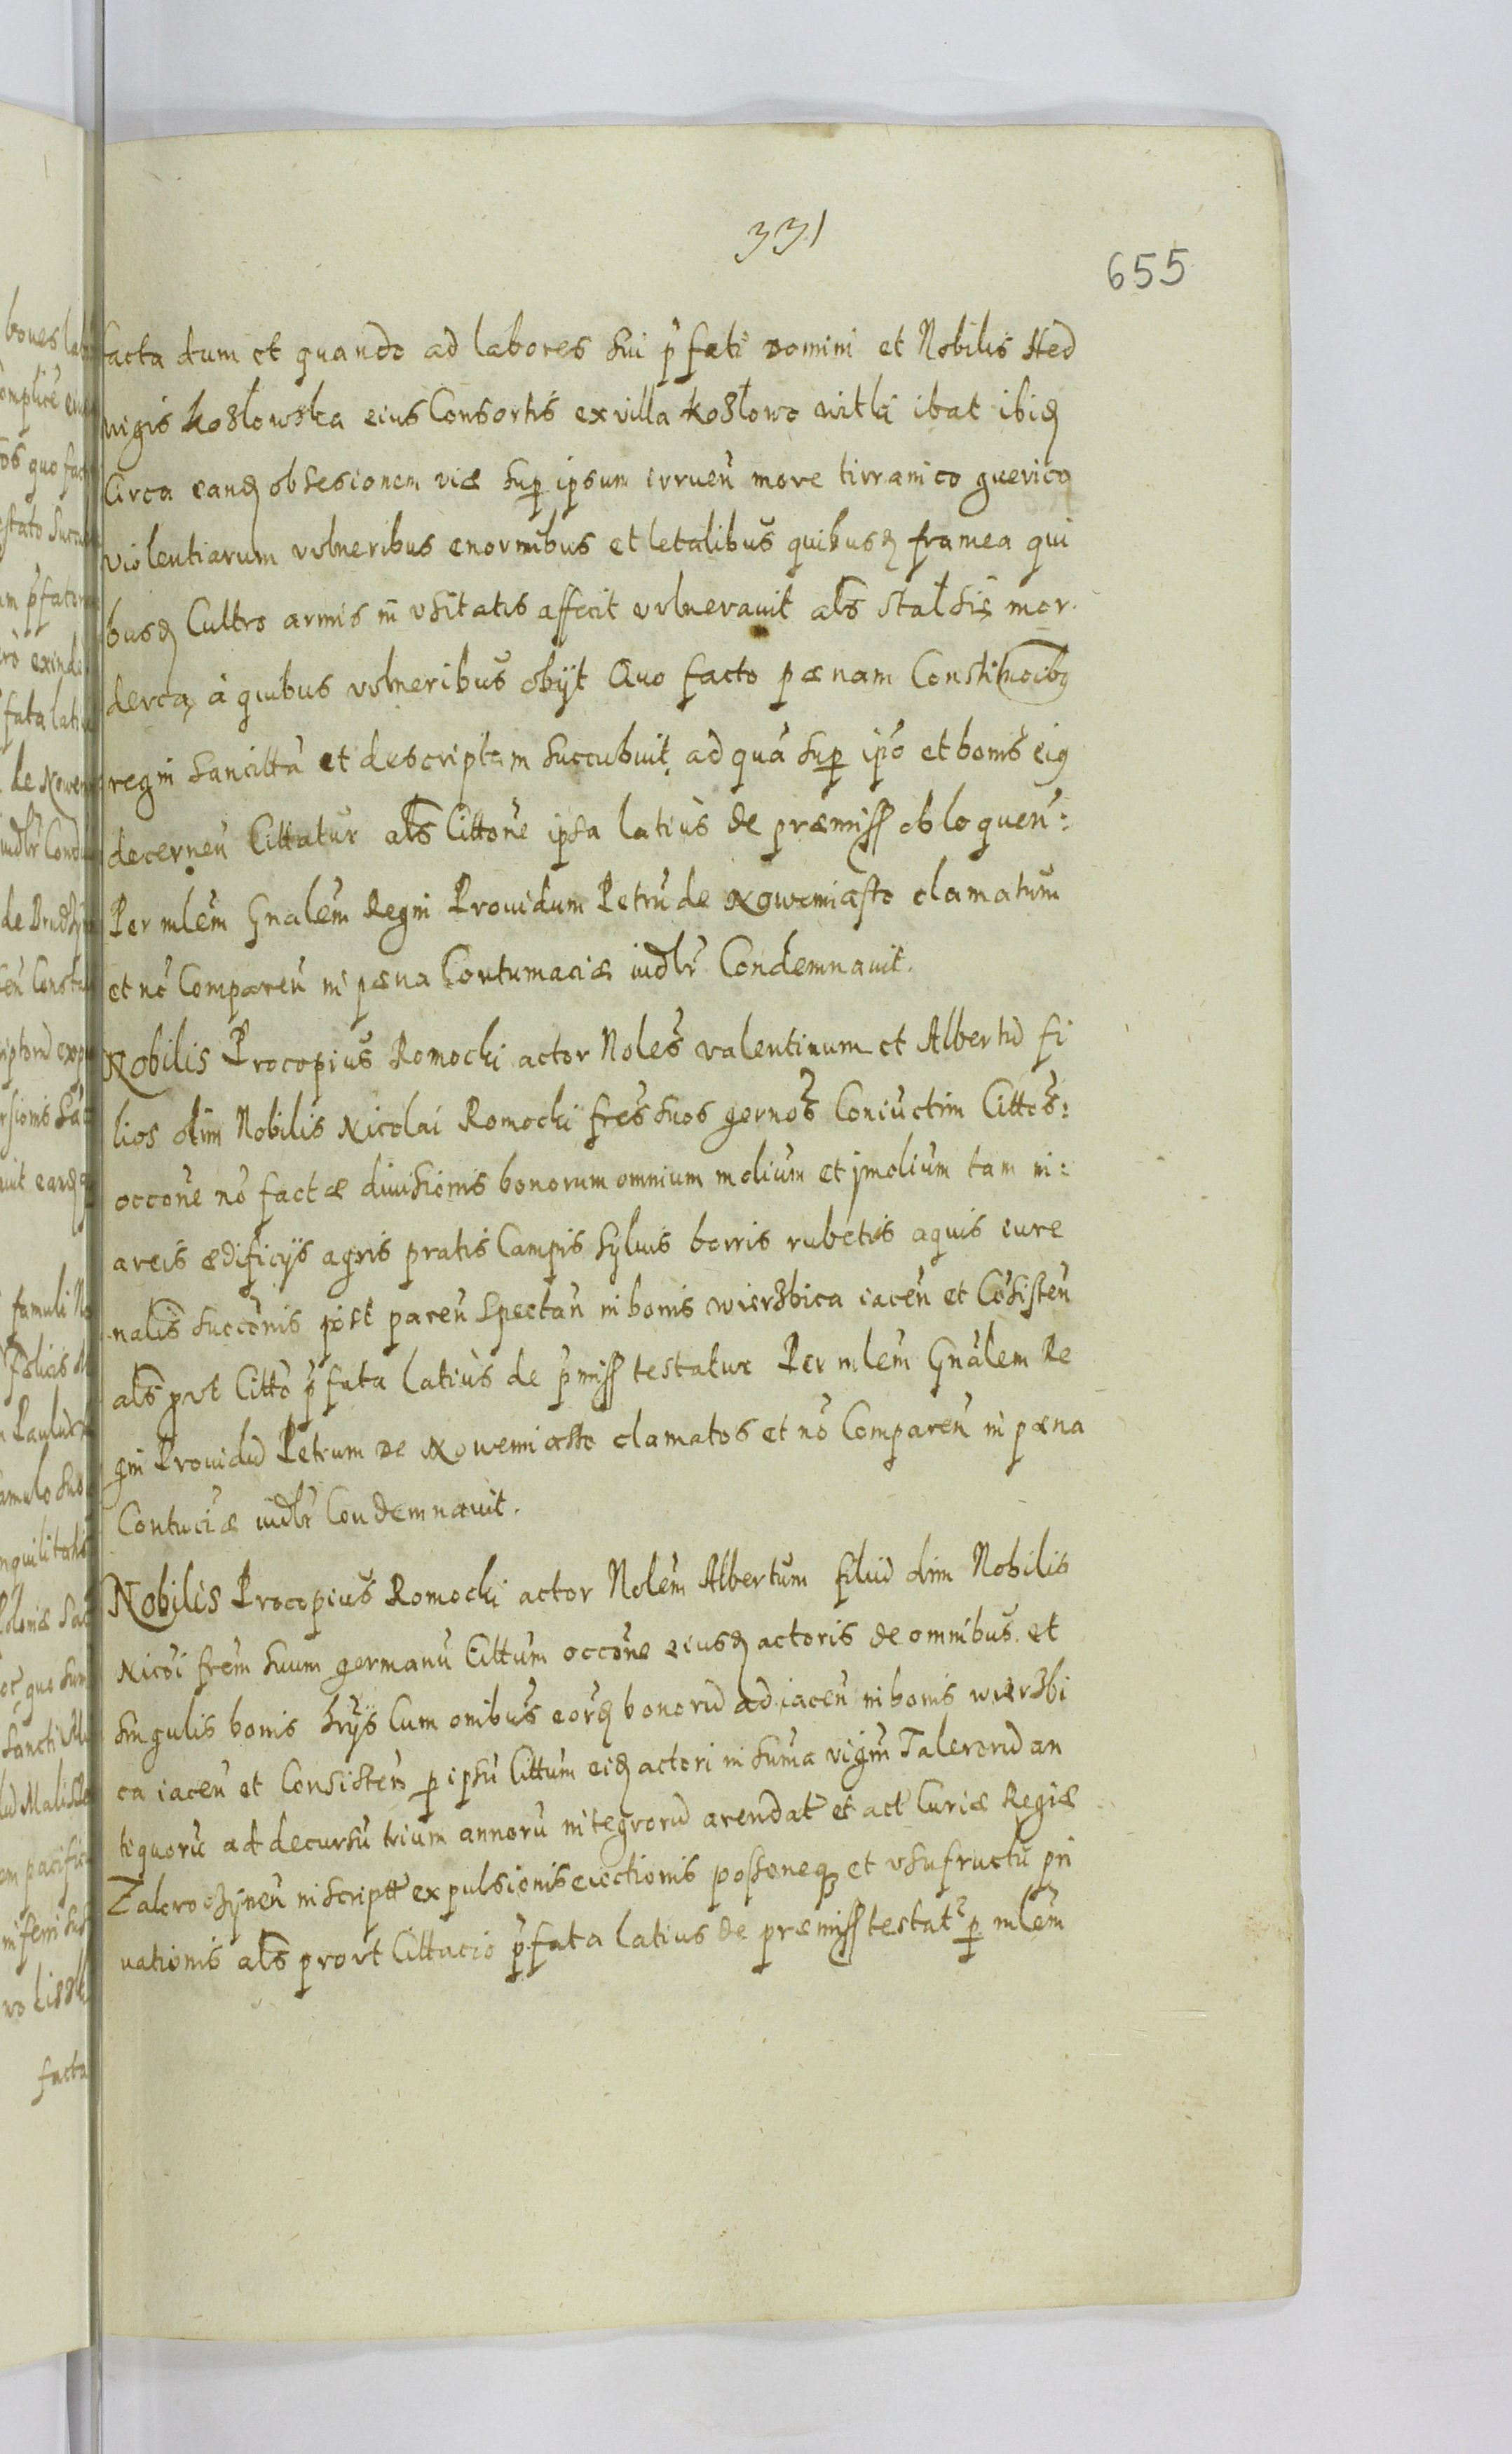 331
655
facta dum et quando ad labores sui p̃fati Domini et Nobilis Hed
vigis Kozłowska eius Consortis ex villa Kozłowo ibat ibidꝫ
Circa eandꝫ obsesionem viæ sup ipsum irrueñ more tirranico
violentiarum vulneribus enormibus et letalibus quibusdꝫ framea qui
busdꝫ Cultro armis vsitatis affecit vulnerauit als̃ mor
à quibus vulneribus obijt Quo facto pænam
regni sancittã et descriptam succubuit ad quã sup ipõ et bonis eiꝰ
decerneñ Cittatur als̃ Cittoñe ipsa latiùs de præmiss obloqueñ:
Per mlem̃ Gnalem̃ Regni Prouidum Petrũ de Nowemiasto clamatum
et nõ Compareñ in pæna Contumaciæ iudlr̃ Condemnauit.
Nobilis Procopius Romocki actor Noles̃ Valentinum et Albertũ fi
lios olim Nobilis Nicolai Romocki fres̃ suos gernos̃ Coniuctim Cittos̃:
occoñe nõ factæ diuisionis bonorum omnium molium et jmolium tam in:
areis ædificijs agris pratis Campis syluis borris rubetis aquis iure
nalis̃ succõnis post pareñ spectañ in bonis Wierzbica iaceñ et Cõsisteñ
als̃ prvt Cittõ p̃fata latiùs de p̃miss testatur Per mlem̃ Gnãlem Re
gni Prouidũ Petrum de Nowemiasto clamatos et nõ Compareñ in pæna
Contuciæ iudlr̃ Condemnauit.
Nobilis Procopius Romocki actor Nolem̃ Albertum filiũ olim Nobilis
Nicõi frem̃ suum germanũ Cittum occoñe eiusdꝫ actoris de omnibus et
singulis bonis Cum onibus eordꝫ bonorũ adiaceñ in bonis Wierzbi
ca iaceñ et Consisteñ p ipsũ Cittum eidꝫ actori in sum̃a vigin̄ Talerorũ an
tiquorũ ad decursũ trium annorũ integrorũ arendat̃ et act̃ Curiæ Regiæ
Zakroczỹneñ inscriptt̃ expulsionis eiectionis possoneqꝫ et vsufructũ pri
uationis als̃ provt Cittacio p̃fata latius de præmiss testatr̃ p mlem̃